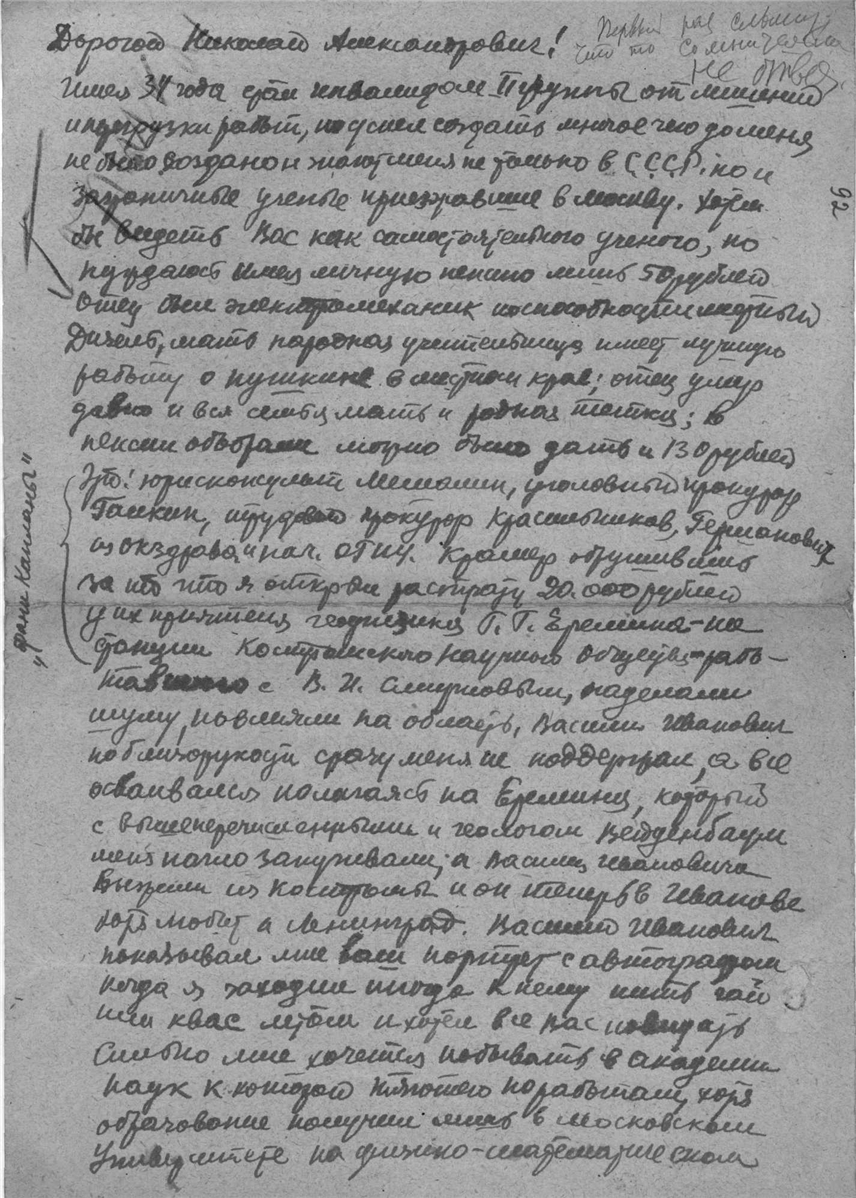 Дорогой Николай Александрович!
Первый раз слышу,
что то сомнительно
не отвеч.
92
Имея 34 года стал инвалидом II группы от лишений
и перегрузки работ, но успел создать многое чего до меня
не было создано и знают меня не только в С.С.С.Р. но и
заграничные ученые приезжавшие в Москву. Хотел
бы видеть Вас как самостоятельного ученого, но
нуждаюсь имея личную пенсию лишь 50 рублей
Отец был электромеханик и способности
мать народная учительница имеет лучшую
работу о Пушкине в местном крае; отец умер
давно и вся семья мать и родная тетка; в
пенсии обобрали можно было дать и 130 рублей
Это! юрисконсульт Мешалин, уголовный прокурор
Галкин, трудовой прокурор Красильников, Германович
из окздрава и нач. ОГПУ. Крамер обрушились
за то что я открыл растрату 20.000 рублей
у их приятеля геофизика Г. Г. Еремина на
станции Костромского Научного Общества рабо-
тавшего с В. И. Смирновым, наделали
шуму, повлияли на область, Василий Иванович
по близорукости сразу меня не поддержал, а все
полагаясь на Еремина, который
с вышеперечисленными и геологом Вейденбаум
меня нагло запугивали, а Василия Ивановича
Выжили из Костромы и он теперь в Иванове
хотя любит и Ленинград. Василий Иванович
показывал мне Ваш портрет с автографом
когда я заходил иногда к нему пить чай
или квас летом и хотел все Вас повидать
Сильно мне хочется побывать в Академии
Наук к которой тяготею поработать, хотя
образование получил лишь в Московском
Университете на физико-математическом
„Фани Капланы"